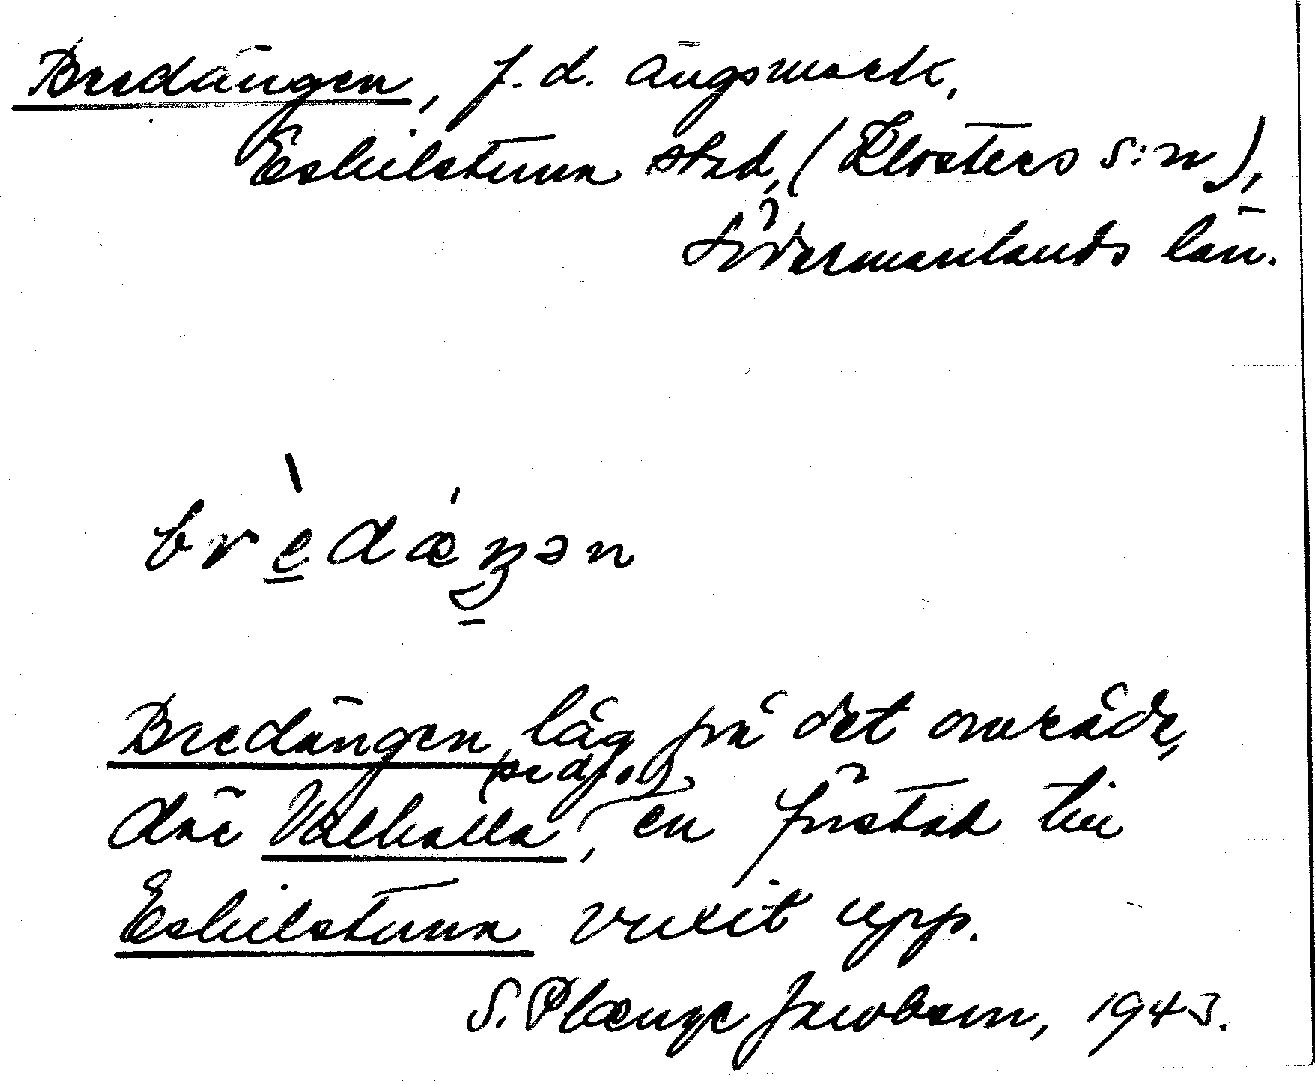 Bredängen, f.d. ängsmark,
Eskilstuna stad, (Klosters s:n),
Södermanlands län.
brèdæŋən
Bredängen låg på det område,
där Valhalla, (se d.o.), en förstad till
Eskilstuna vuxit upp.
S. Plænge Jacobson, 1943.